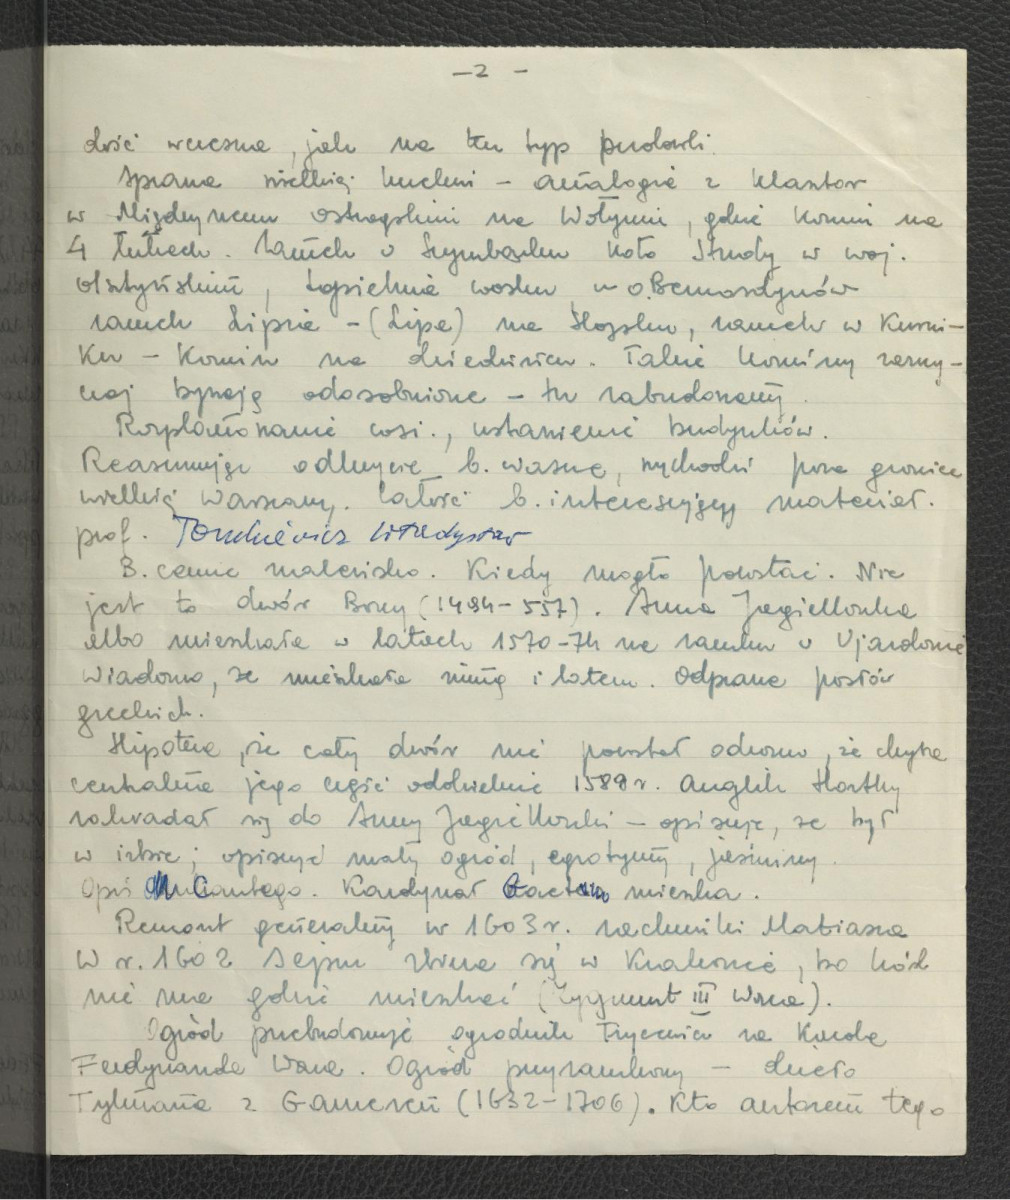 – 2 –
dość wczesna, jak na ten typ budowli.
Sprawa wielkiej kuchni – analogie z klasztor
w Międzyrzeczu ostrogskim na Wołyniu, gdzie komin na
4 łukach. Zamek w Szymbarku koło Iławy w woj.
olsztyńskim, topielnia wosku u o. Bernardynów
zamek Lipie – (Lipa) na Śląsku, zamek w Kurni-
ku – komin na dziedzińcu. Takie kominy zazwy-
czaj bywają odosobnione – tu zabudowany.
Rozplanowanie wsi., ustawienie budynków.
Reasumując odkrycie b. ważne, wychodzi poza granice
wielkiej Warszawy. Całość b. interesujący materiał.
prof. Tomkiewicz Władysław
B. cenne znalezisko. Kiedy mogło powstać. Nie
jest to dwór Bony (1494–557). Anna Jagiellonka
albo mieszkała w latach 1570–74 na zamku w Ujazdowie
Wiadomo, że mieszkała zimą i latem. Odprawa posłów
greckich.
Hipoteza, że cały dwór nie powstał odrazu, że chyba
centralna jego część oddzielnie 1589 r. Anglik
zakradał się do Anny Jagiellonki – opisuje, że był
w izbie; opisuje mały ogród, egzotyczny, jaśminy.
Opis Mucantego. Kardynał Gaetano mieszka.
Remont generalny w 1603 r. rachunki Matiasza
W r. 1602 Sejm zbiera się w Krakowie, bo król
nie ma gdzie mieszkać (Zygmunt III Waza).
Ogród przebudowuje ogrodnik na Karola
Ferdynanda Wazę. Ogród przyzamkowy – dzieło
Tylmana z Gameren (1632–1706). Kto autorem tego